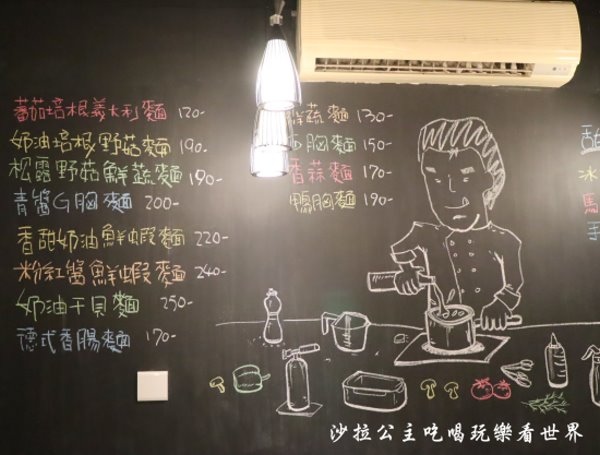 蕃茄培根義大利麵 120-
奶油培根野菇麵 190-
松露野菇鮮蔬麵 190-
青醬G胸麵 200-
香甜奶油鮮蝦麵 220-
粉紅醬鮮蝦麵 240-
奶油干貝麵 250-
德式香腸麵 170-
鮮蔬麵 130-
胸麵 150-
香蒜麵 170-
鴨胸麵 190-
甜
冰
馬
手
沙拉公主吃喝玩樂看世界